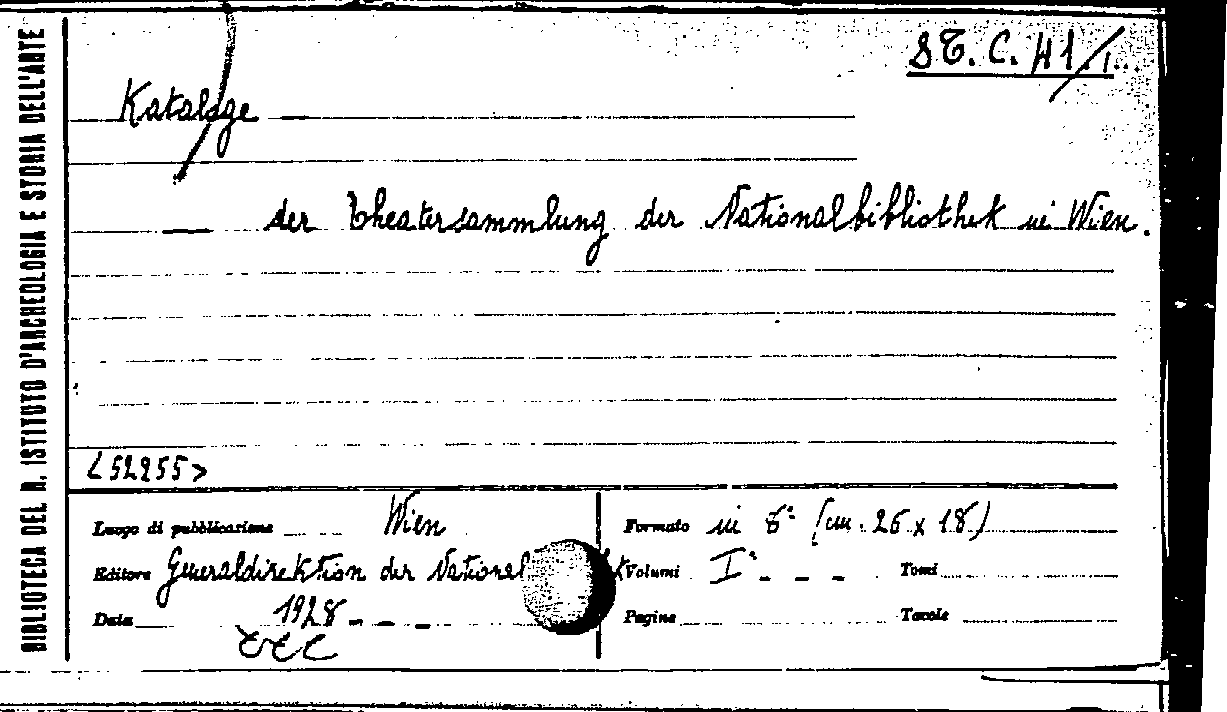 BIBLIOTECA DEL R. ISTITUTO D'ARCHEOLOGIA E STORIA DELL'ARTE
ST. C. 41/1...
Kataloge
— der Theatersammlung der Nationalbibliothek in Wien.
<52255>
Luogo di pubblicazione Wien
Formato in 8° (cm. 26 x 18)
Editore Generaldirektion der National
Volumi I° - - -
Tomi
Data 1928 - - -
Pagine
Tavole